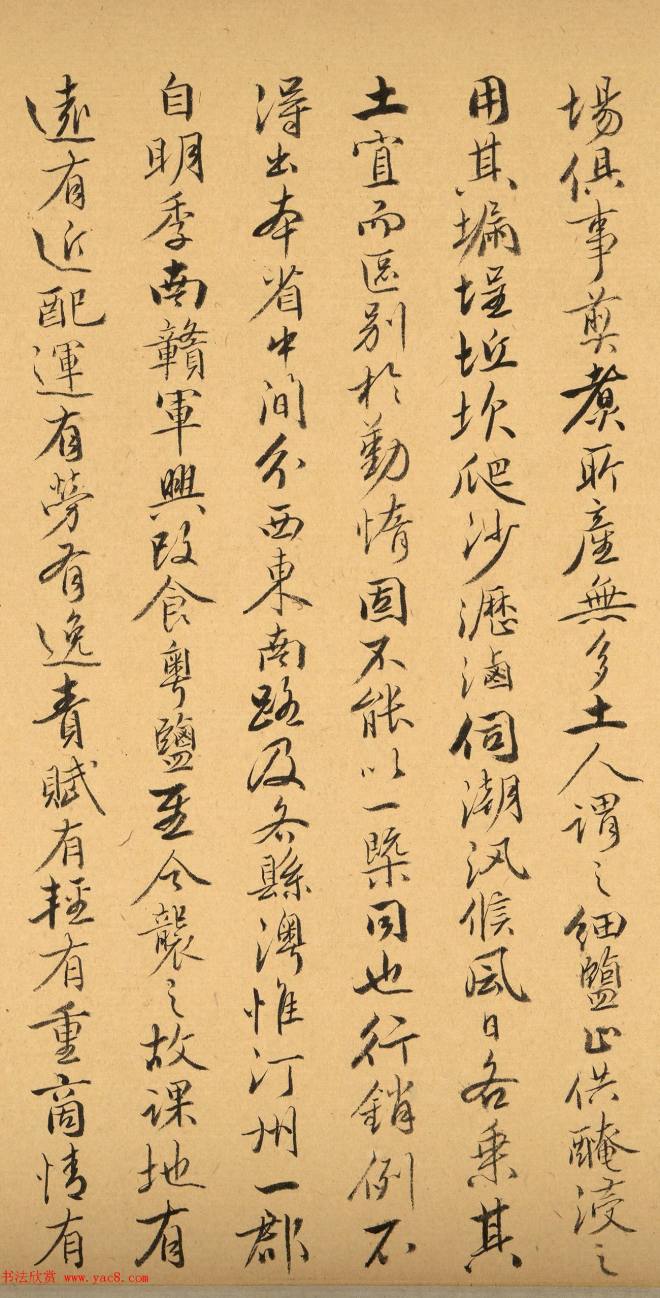 場俱事煎煮所產無多土人謂之細鹽止供醃浸之
用其埕坵坎爬沙瀝滷伺潮汛候風日各乘其
土宜而區別於勤惰固不能以一槩同也行銷例不
得出本省中間分西東南路及各縣澳惟汀州一郡
自明季南贛軍興改食粵鹽至今襲之故課地有
遠有近配運有勞有逸責賦有輕有重商情有
书法欣赏 www.yac8.com